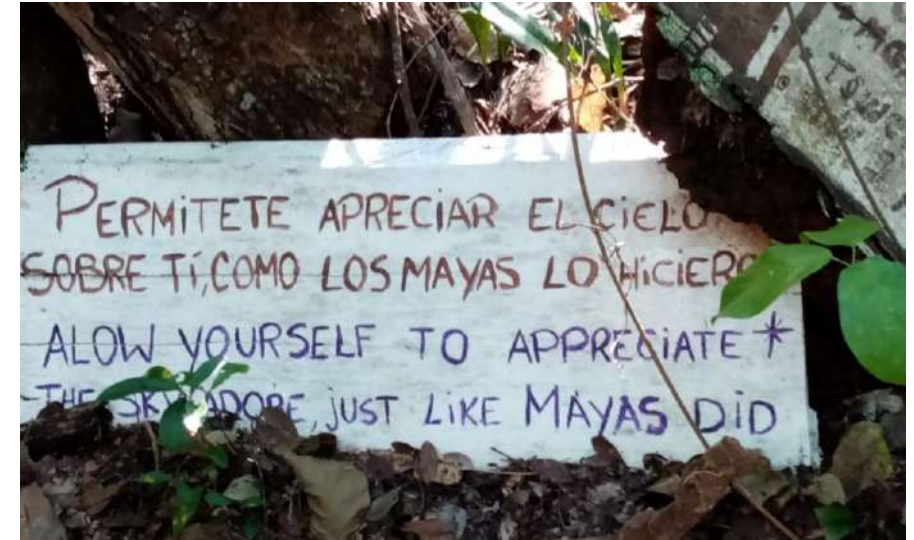 PERMITETE APRECIAR EL CIELO
SOBRE TÍ, COMO LOS MAYAS LO HICIERO
ALOW YOURSELF TO APPRECIATE *
THE SKY ADORE, JUST LIKE MAYAS DID